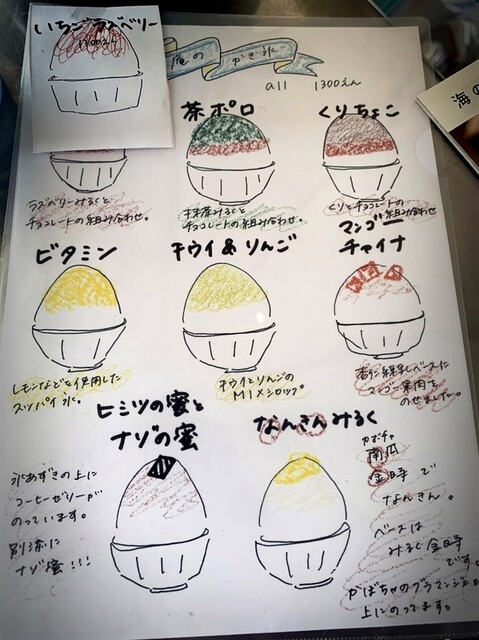 いちごラズベリー
1300えん
俺の かき氷
all 1300えん
茶ポロ
くりちょこ
ラズベリーみるくと
チョコレートの組み合わせ。
抹茶みるくと
チョコレートの組み合わせ。
くりとチョコレートの
組み合わせ
ビタミン
キウイ&りんご
マンゴー
チャイナ
レモンなどを使用した
スッパイ氷。
キウイとりんごの
MIXシロップ。
杏仁練乳ベースに
マンゴー果肉を
のせました。
ヒミツの蜜と
ナゾの蜜
なんきんみるく
氷あずきの上に
コーヒーゼリーが
のっています。
別添に
ナゾ蜜!!!
カボチャ
南瓜
金時で
なんきん。
ベースは
みるく金時
です。
かぼちゃのブラマンジェ
上にのってます。
海の